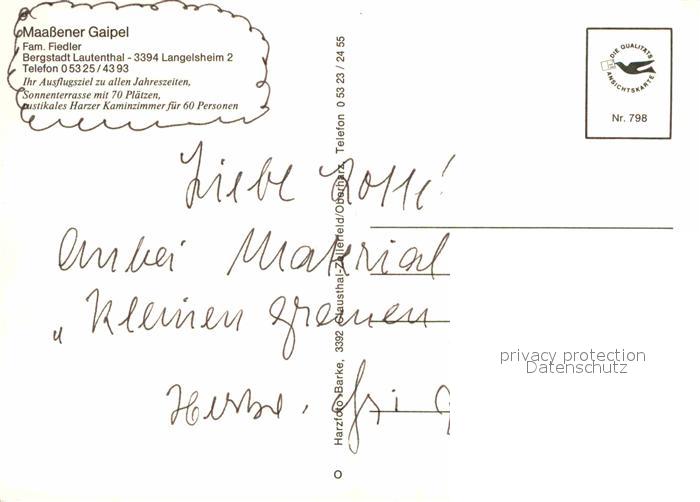 Maaßener Gaipel
Fam. Fiedler
Bergstadt Lautenthal - 3394 Langelsheim 2
Telefon 0 53 25 / 43 93
Ihr Ausflugsziel zu allen Jahreszeiten,
Sonnenterrasse mit 70 Plätzen,
rustikales Harzer Kaminzimmer für 60 Personen
DIE QUALITÄTS
ANSICHTSKARTE
Nr. 798
Harzfoto-Barke, 3392 Clausthal-Zellerfeld/Oberharz, Telefon 0 53 23 / 24 55
Liebe Lotte!
Anbei Material
"kleinen
privacy protection
Datenschutz